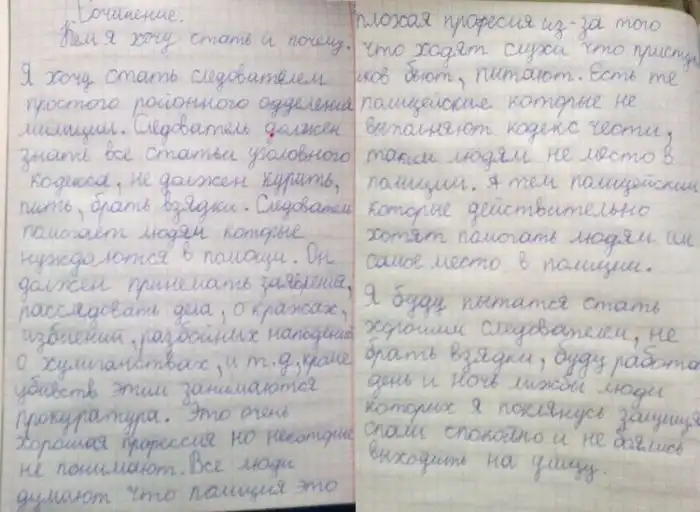 Сочинение.
Кем я хочу стать и почему.
Я хочу стать следователем
простого районного одделения
милиции. Следователь должен
знать все статьи уголовного
кодекса, не должен курить,
пить, брать взядки. Следователь
помогает людям которые
нуждаются в помощи. Он
должен принемать заявления,
расследовать дела, о кражах,
избиений, разбойных нападений
о хулиганствах, и т.д, кроме
убивств этим занимаются
прокуратура. Это очень
хорошая професcия но некоторые
не понимают. Все люди
думают что полиция это
плохая професия из-за того
что ходят слухи что приступ
иков бьют, пытают. Есть те
полицейские которые не
выполняют кодекс чести,
таким людям не место в
полиции. А тем полицейским
которые действительно
хотят помогать людям им
самое место в полиции.
Я буду пытатся стать
хорошим следователем, не
брать взядки, буду работа
день и ночь лижбы люди
которых я поклянусь защища
спали спокойно и не боялись
выходить на улицу.